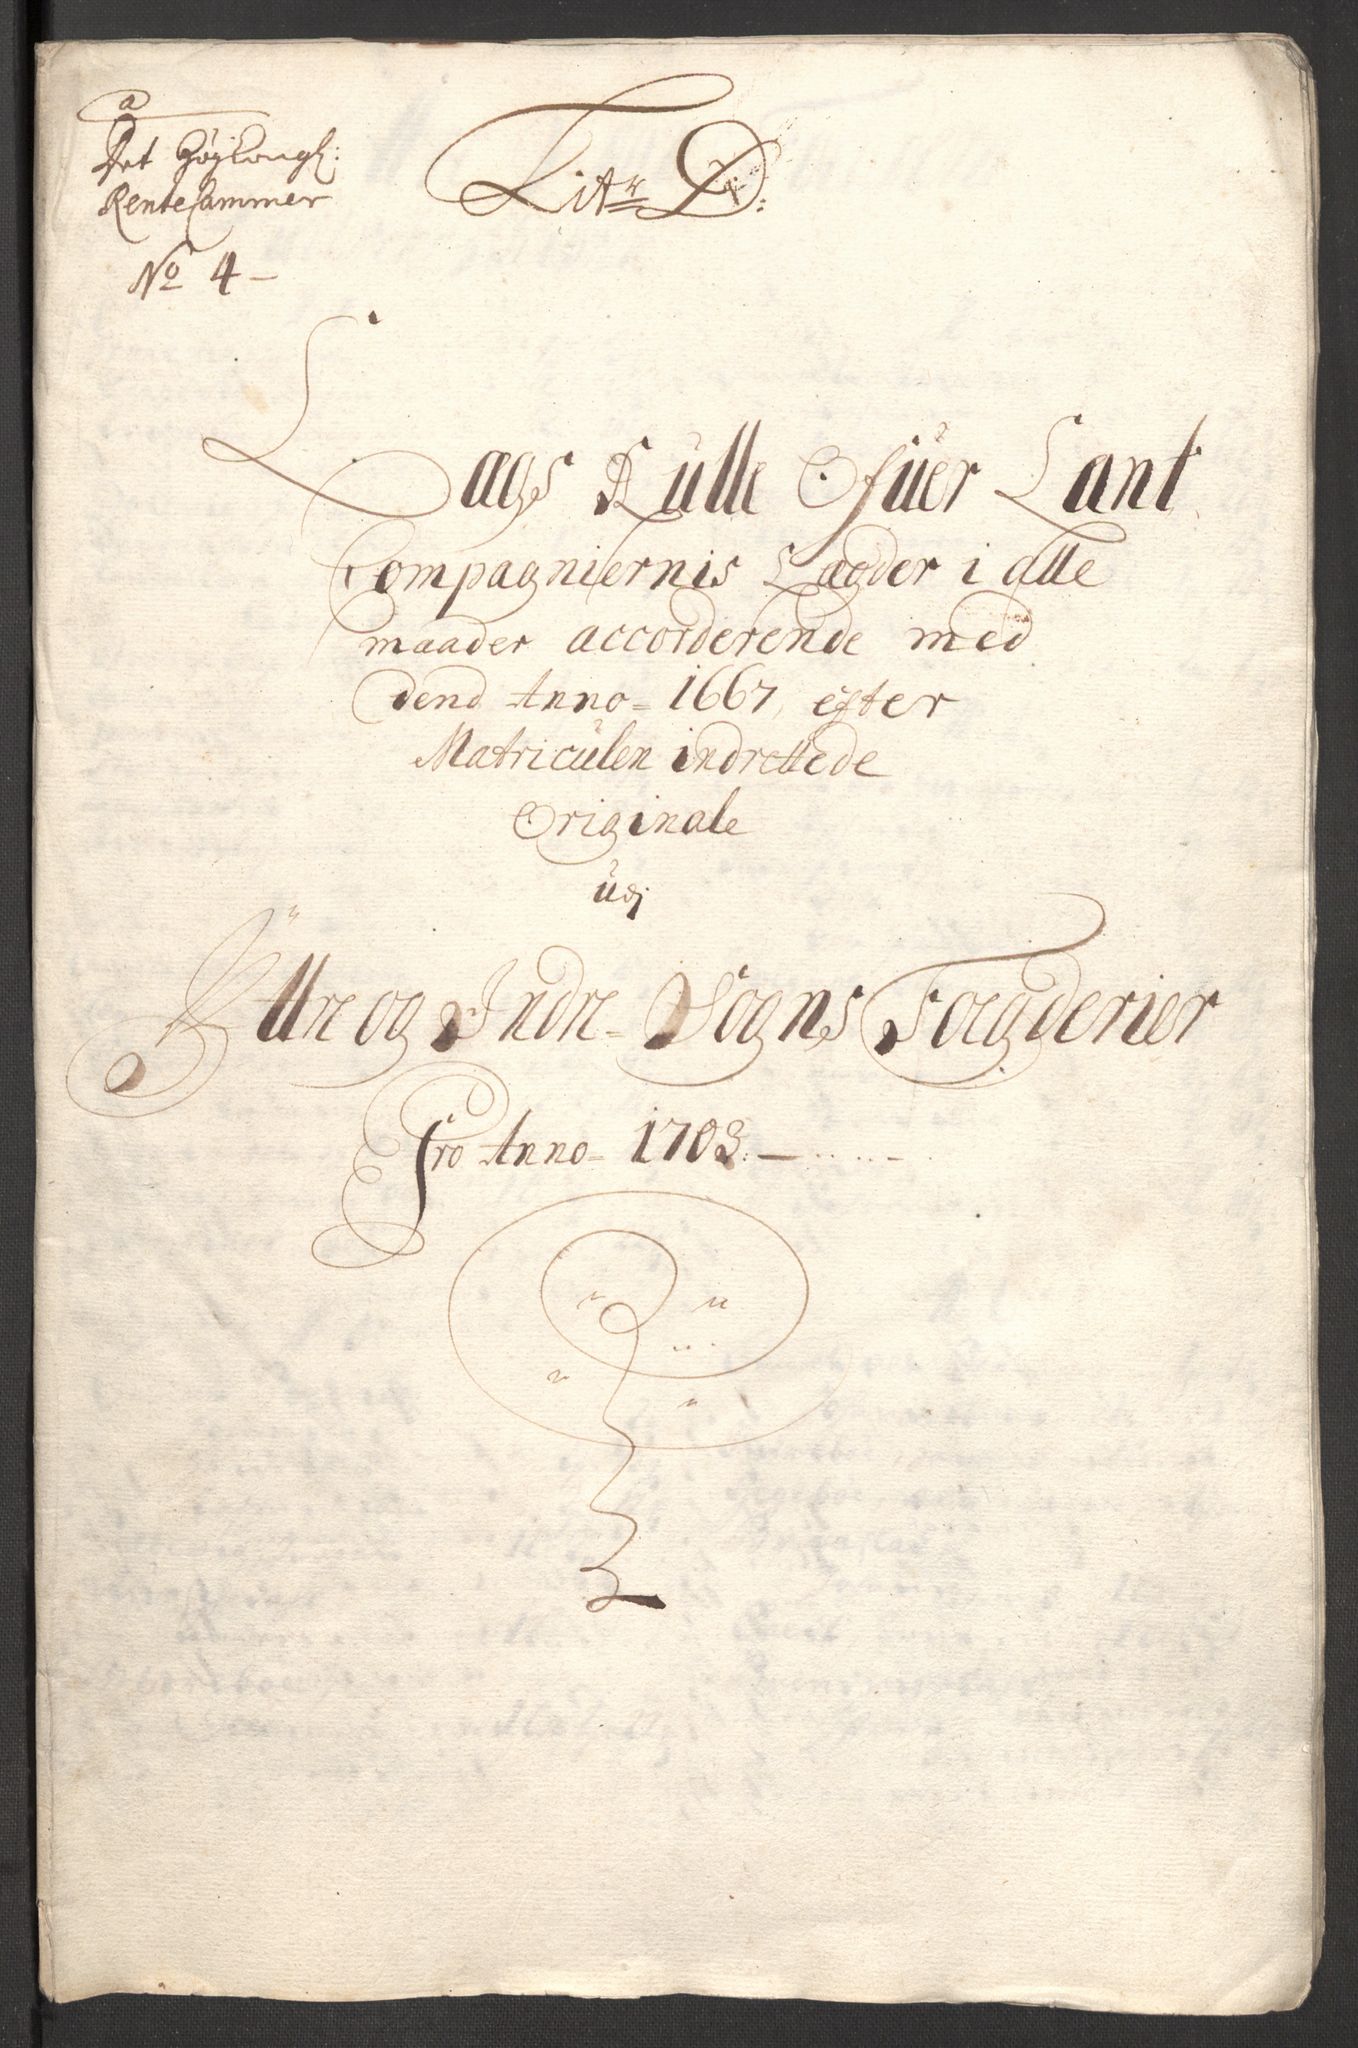 a
Det Høykongl:
Rente Cammer
No 4 –
Litr D:
Lægs Rulle Ofuer Lant
Compagniernis Lægder i alle
maader accorderende med
dend Anno = 1667, efter
Matriculen indrettede
Originale
udj
Yttre og Indre = Sogns Foegderier
Pro Anno = 1703. –